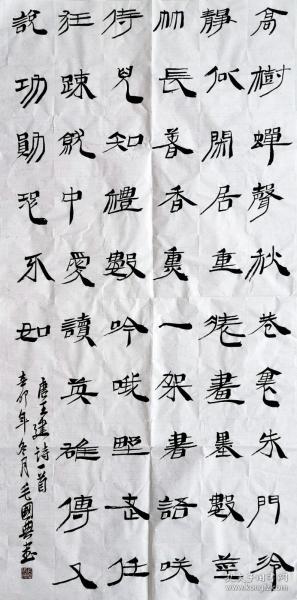 高樹蟬聲秋巷裏朱門冷
靜似閒居重畫墨數莖
竹長著香熏一架書語咲
侍兒知禮數吟哦野老任
狂疎就中愛讀英雄傳又
說功勛恐不如
唐王建詩一首
辛卯年冬月毛國典書